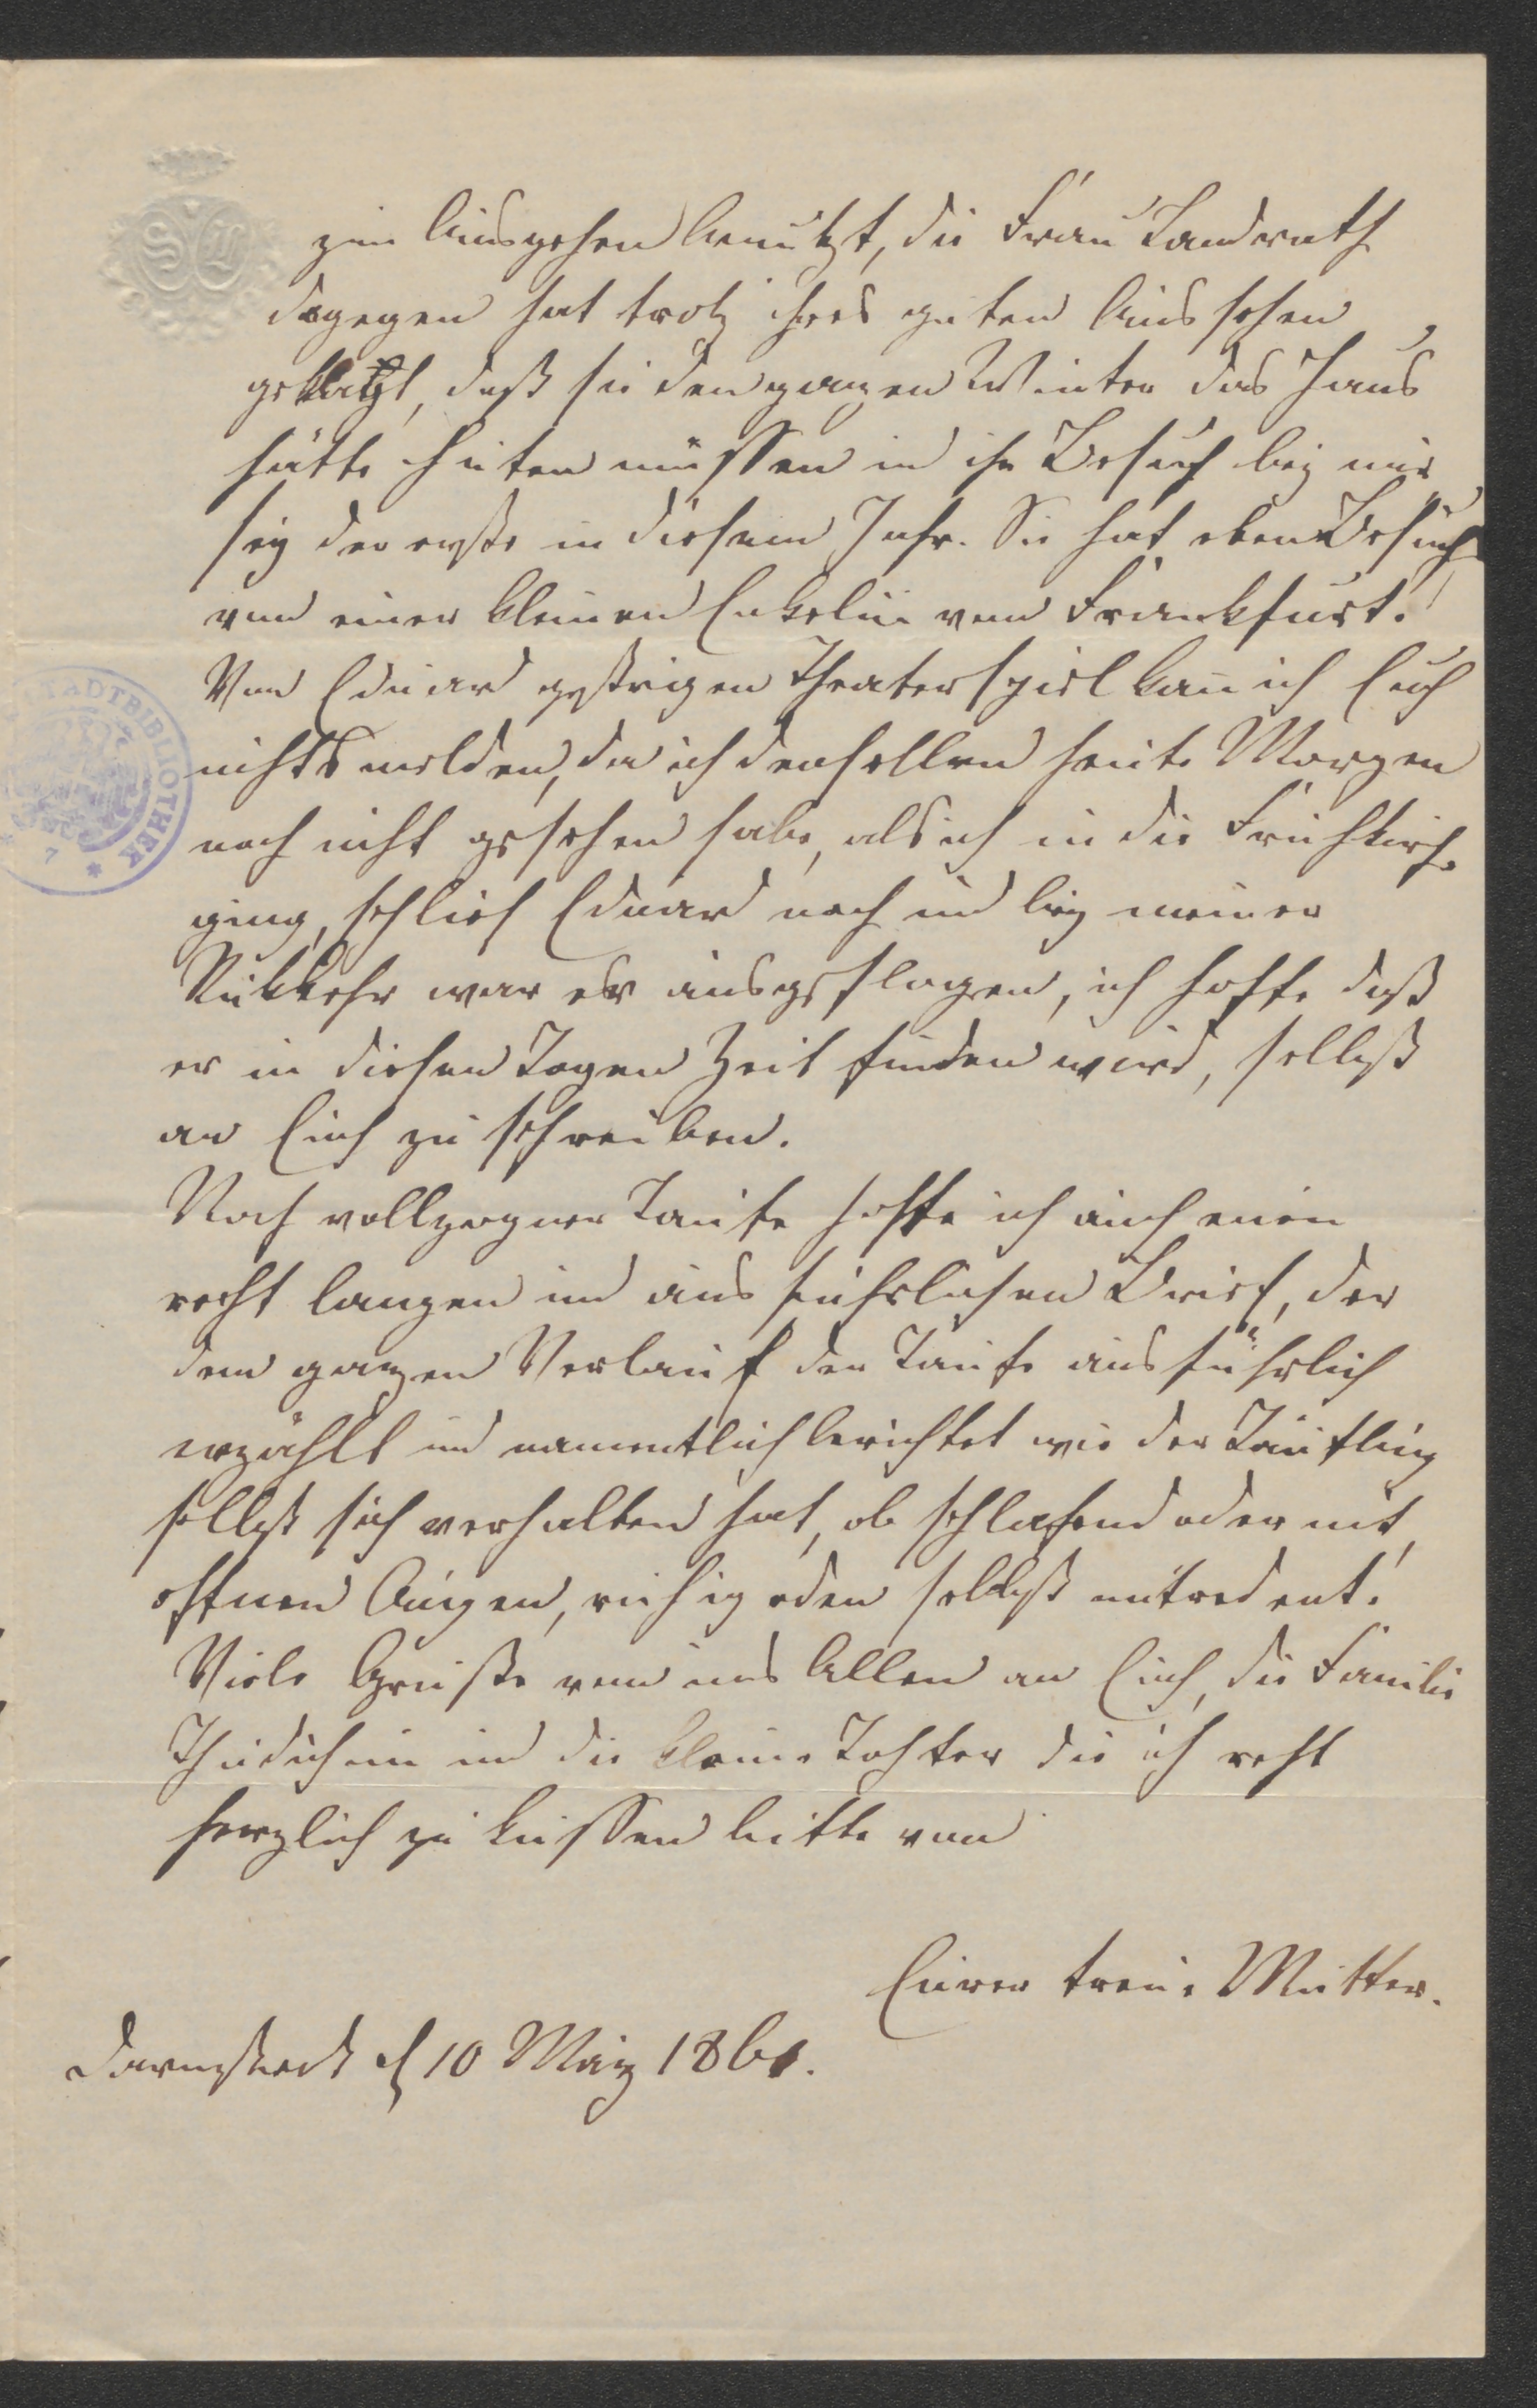 SL
zum Ausgehen benutzt, die Frau Landrath
dagegen hat trotz ihres guten Aussehen
geklagt, daß sie den ganzen Winter das Haus
hätte hüten müssen und ihr Besuch bey mir
sey der erste in diesem Jahr. Sie hat eben Besuch
von einer kleinen Enkelin von Frankfurt.
Von Eduard gestrigen Theaterspiel kann ich Euch
nichts melden, da ich denselben heute Morgen
noch nicht gesehen habe, als ich in die Frühkirche
ging, schlief Eduard noch und bey meiner
Rükkehr war er ausgeflogen, ich hoffe daß
er in diesen Tagen Zeit finden wird, selbst
an Euch zu schreiben.
Nach vollzogner Taufe hoffe ich auf einen
recht langen und ausführlichen Brief, der
den ganzen Verlauf der Taufe ausführlich
erzählt und namentlich berichtet wie der Täufling
selbst sich verhalten hat, ob schlafend oder mit
offnen Augen, ruhig oder selbst mitredent.
Viele Grüße von uns Allen an Euch, die Familie
Thudichum und die kleine Tochter die ich recht
herzlich zu küssen bitte von
Eurer treue Mutter.
Darmstadt d 10 März 1861.
STADTBIBLIOTHEK